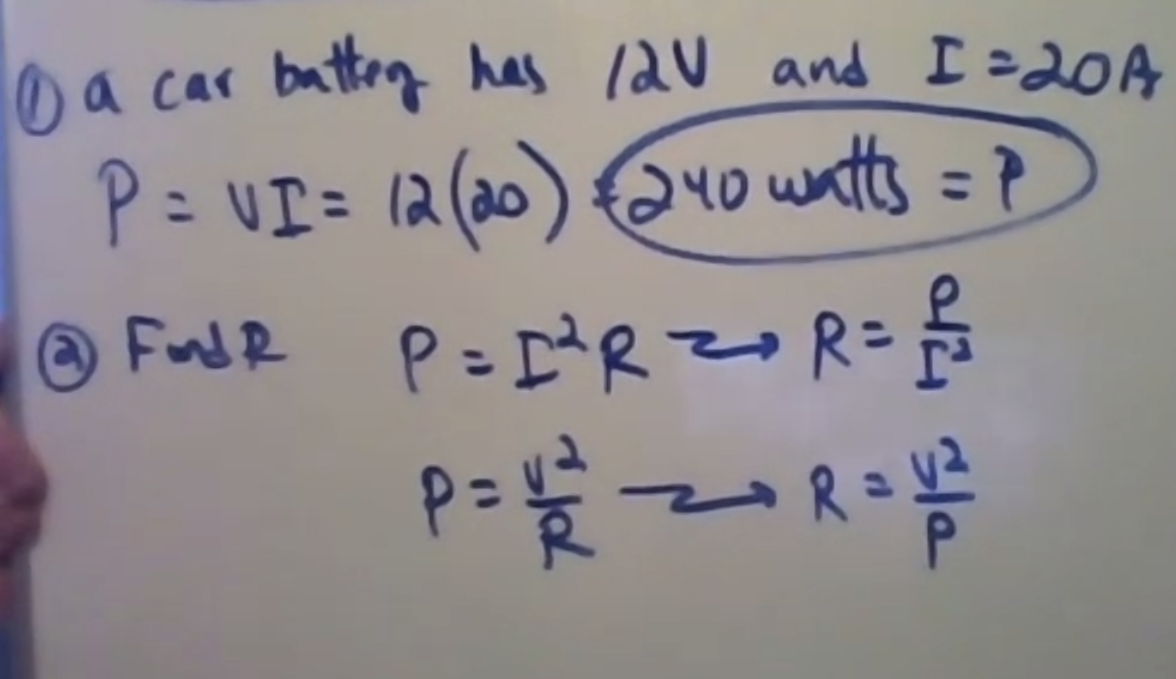 ① a car battery has 12V and I = 20A
P = VI = 12(20) = 240 watts = P
② Find R P = I²R → R = P/I²
P = V²/R → R = V²/P